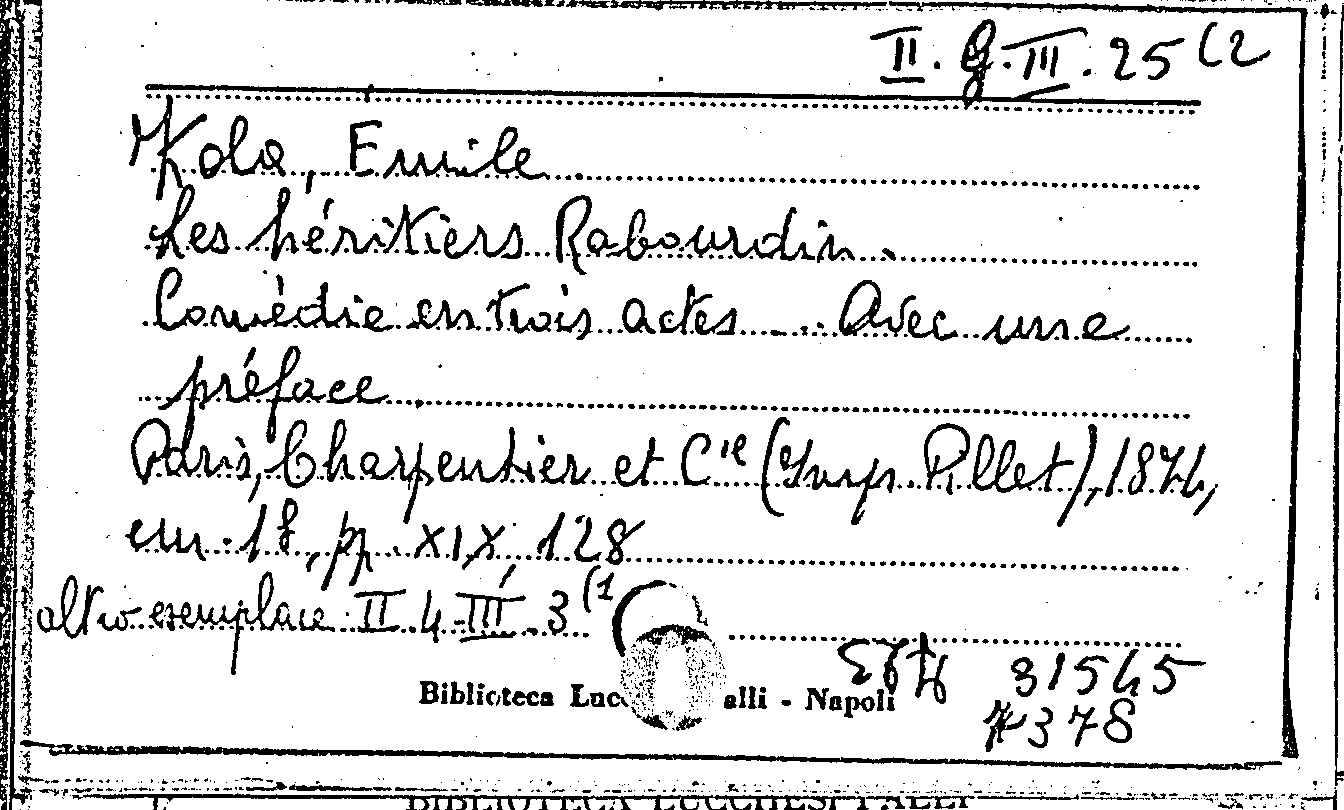 II. G. III. 25 (2
Zola, Emile
Les héritiers Rabourdin.
Comédie en trois actes... Avec une
préface
Paris, Charpentier et Cie (Imp. Pillet), 1874,
cm. 18, pp. XIX, 128
altro esemplare II 4 III 3 (1
31545
Biblioteca Lucc alli - Napoli
4378
BIBLIOTECA LUCCHESI PALLI